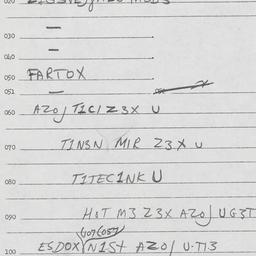 020
030 —
040 —
050 FARTOX
051 —
060 AZoJ T1C1 Z3X U
070 T1NSN M1R Z3X U
080 T1TEC1NK U
090 HOT M3 Z3X AZoJ UG3T
100 ESDOX N1S+ AZOJ U-T13